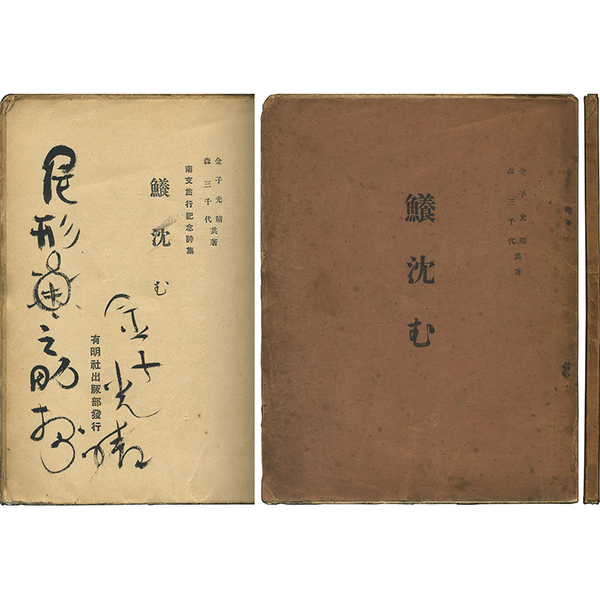 金子光晴
森三千代共著
南支旅行記念詩集
鱶沈む
有明社出版部發行
金子光晴
尾形亀之助様
金子光晴
森三千代共著
鱶沈む